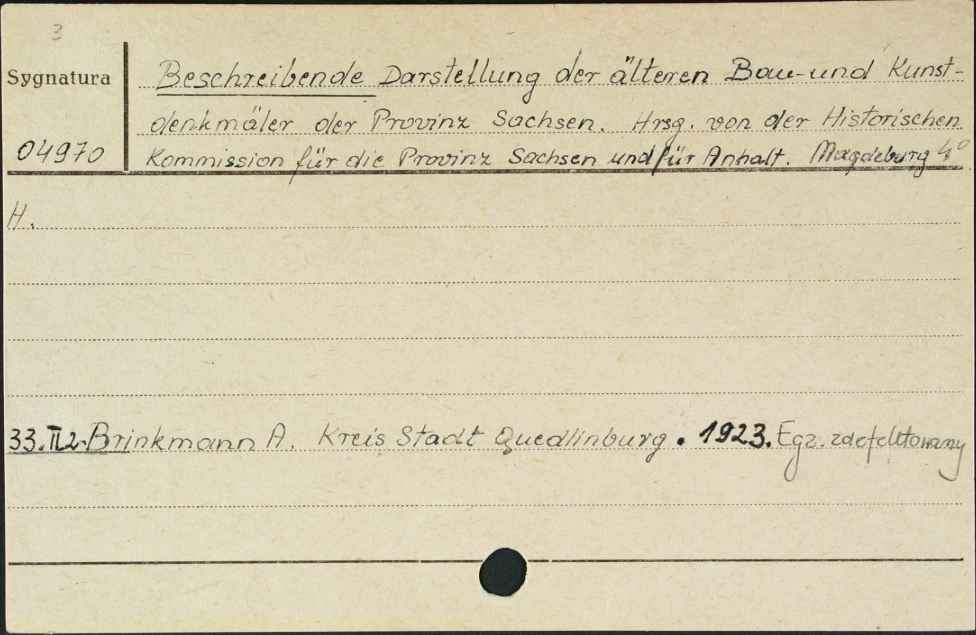 3
Sygnatura
Beschreibende Darstellung der älteren Bau- und Kunst-
denkmäler der Provinz Sachsen. Hrsg. von der Historischen
04970
Kommission für die Provinz Sachsen und für Anhalt. Magdeburg 4°
H.
33.II2. Brinkmann A. Kreis Stadt Quedlinburg. 1923. Egz. zdefektowany